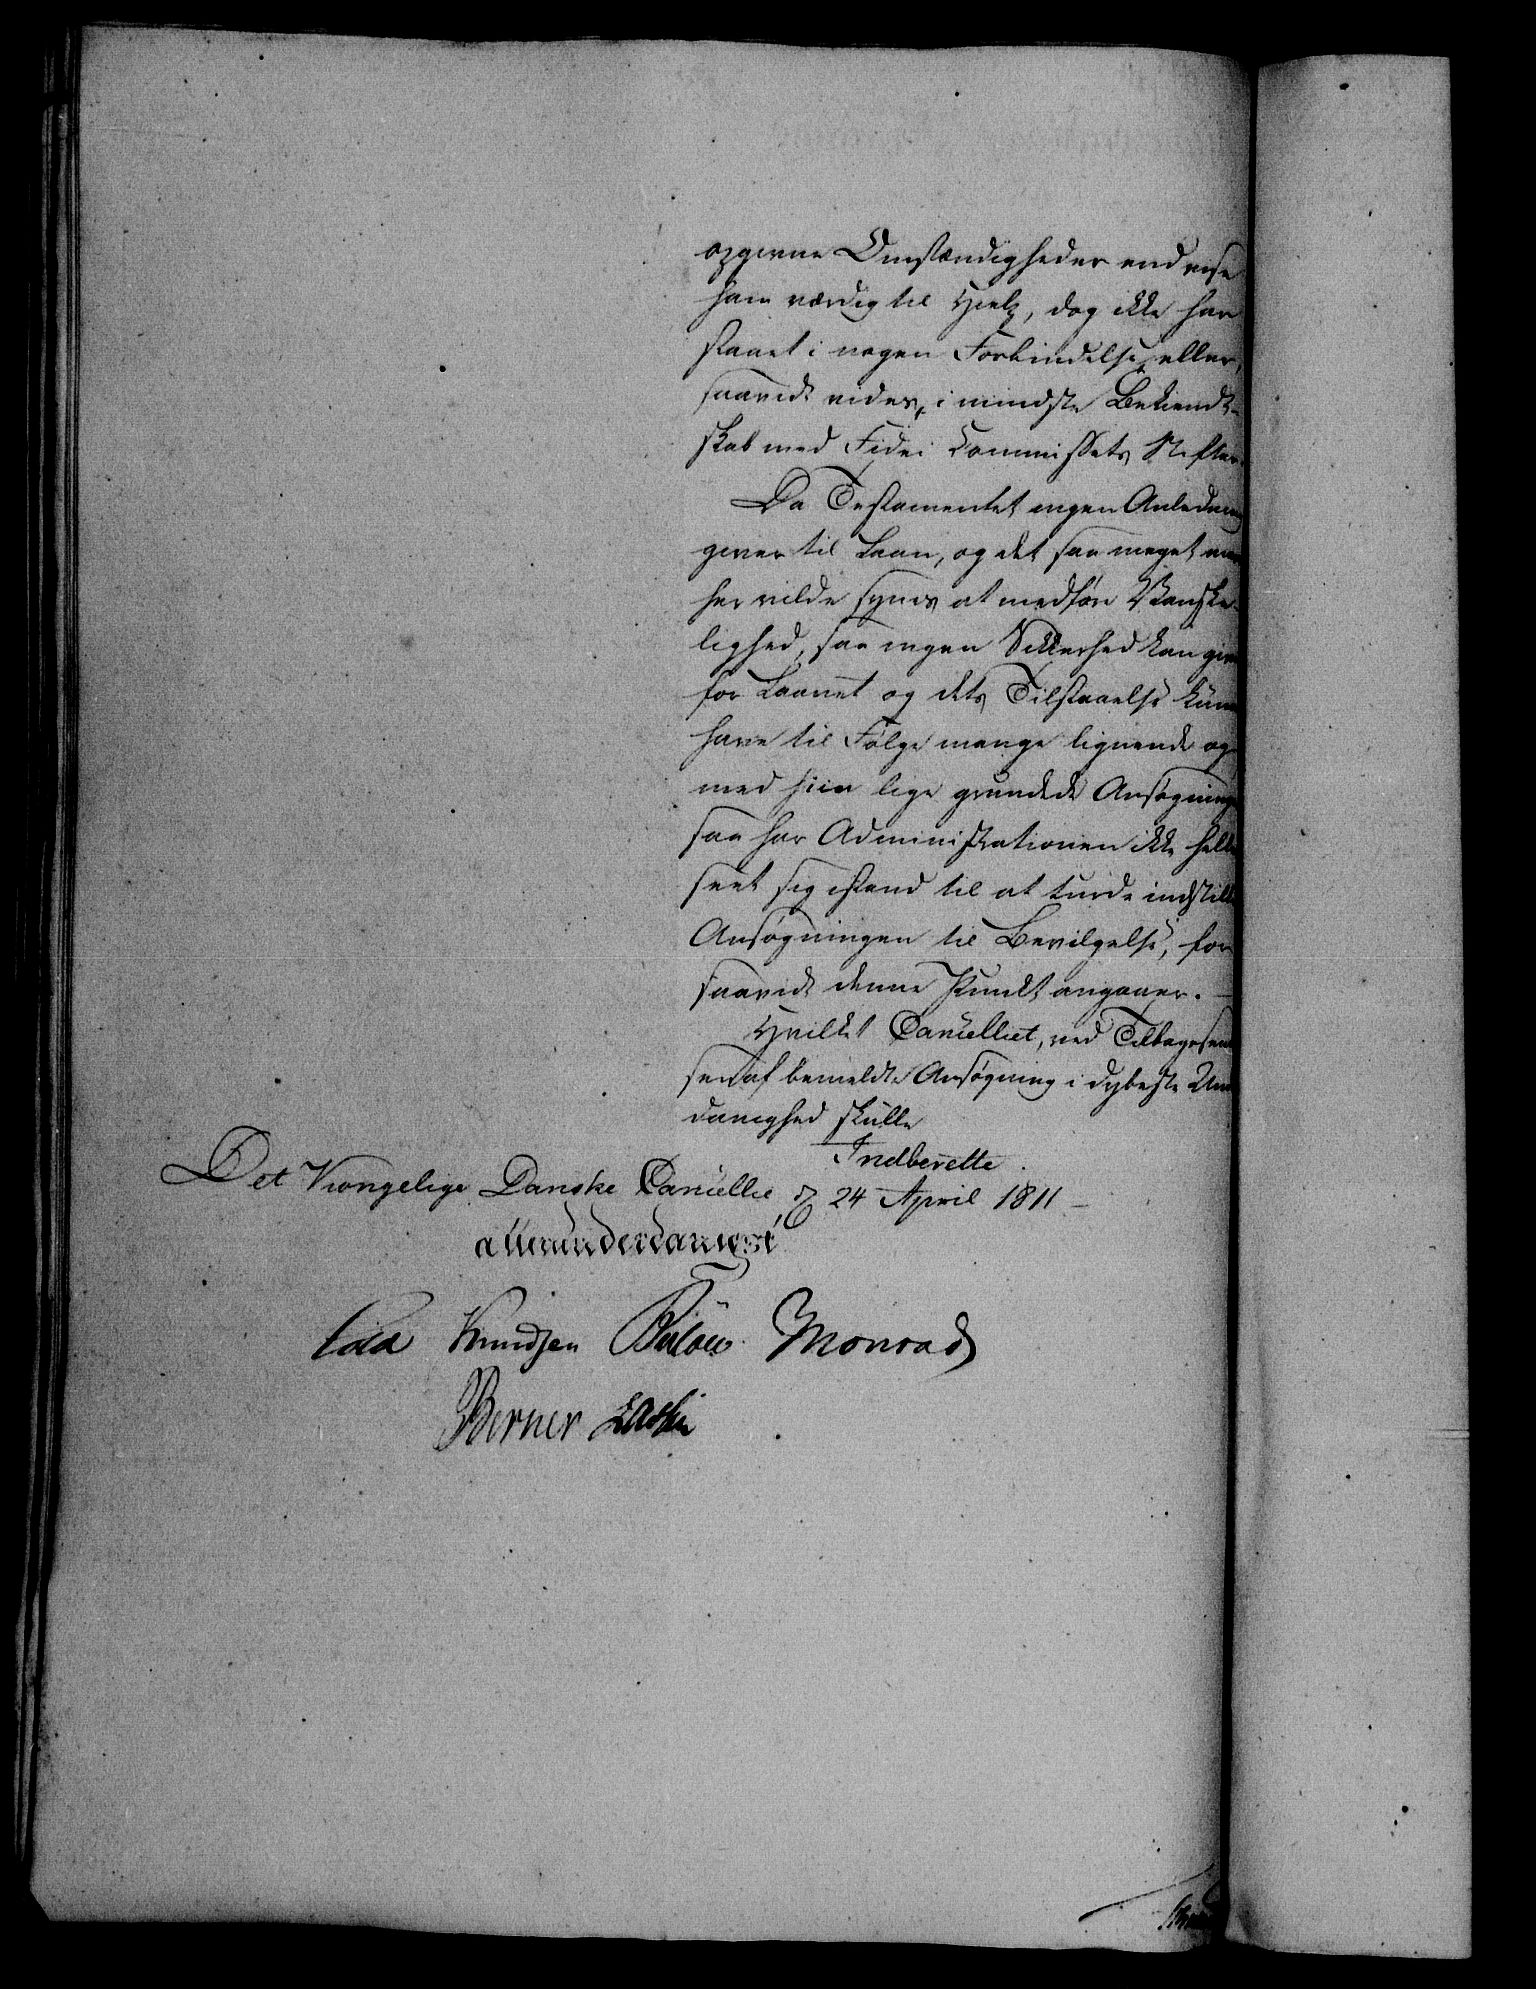 opgivne Omstændigheder end vise
ham værdig til Hielp, dog ikke har
staaet i nogen Forbindelse eller,
saavidt vides, i mindste Bekiendt-
skab med Fidei Commissets Stifter.
Da Testamentet ingen Anledning
giver til Laan, og det saa meget
her vilde synes at medføre Vanske-
lighed, saa ingen Sikkerhed kan give
for Laanet og dets Tilstaaelse kun
have til Følge mange lignende og
med hiin lige grundede Ansøgninge
saa har Administrationen ikke helle
seet sig istand til at turde indstille
Ansøgningen til Bevilgelse, for
saavidt denne Punkt angaaer. —
Hvilket Cancelliet, ved Tilbagesen
sen af bemeldte Ansøgning i dybeste Un
danighed skulle
Indberette.
Det Kongelige Danske Cancellie, d 24 April 1811 —
allerunderdanigst
Kaas Knudsen Bülow Monrad
Berner Lassen